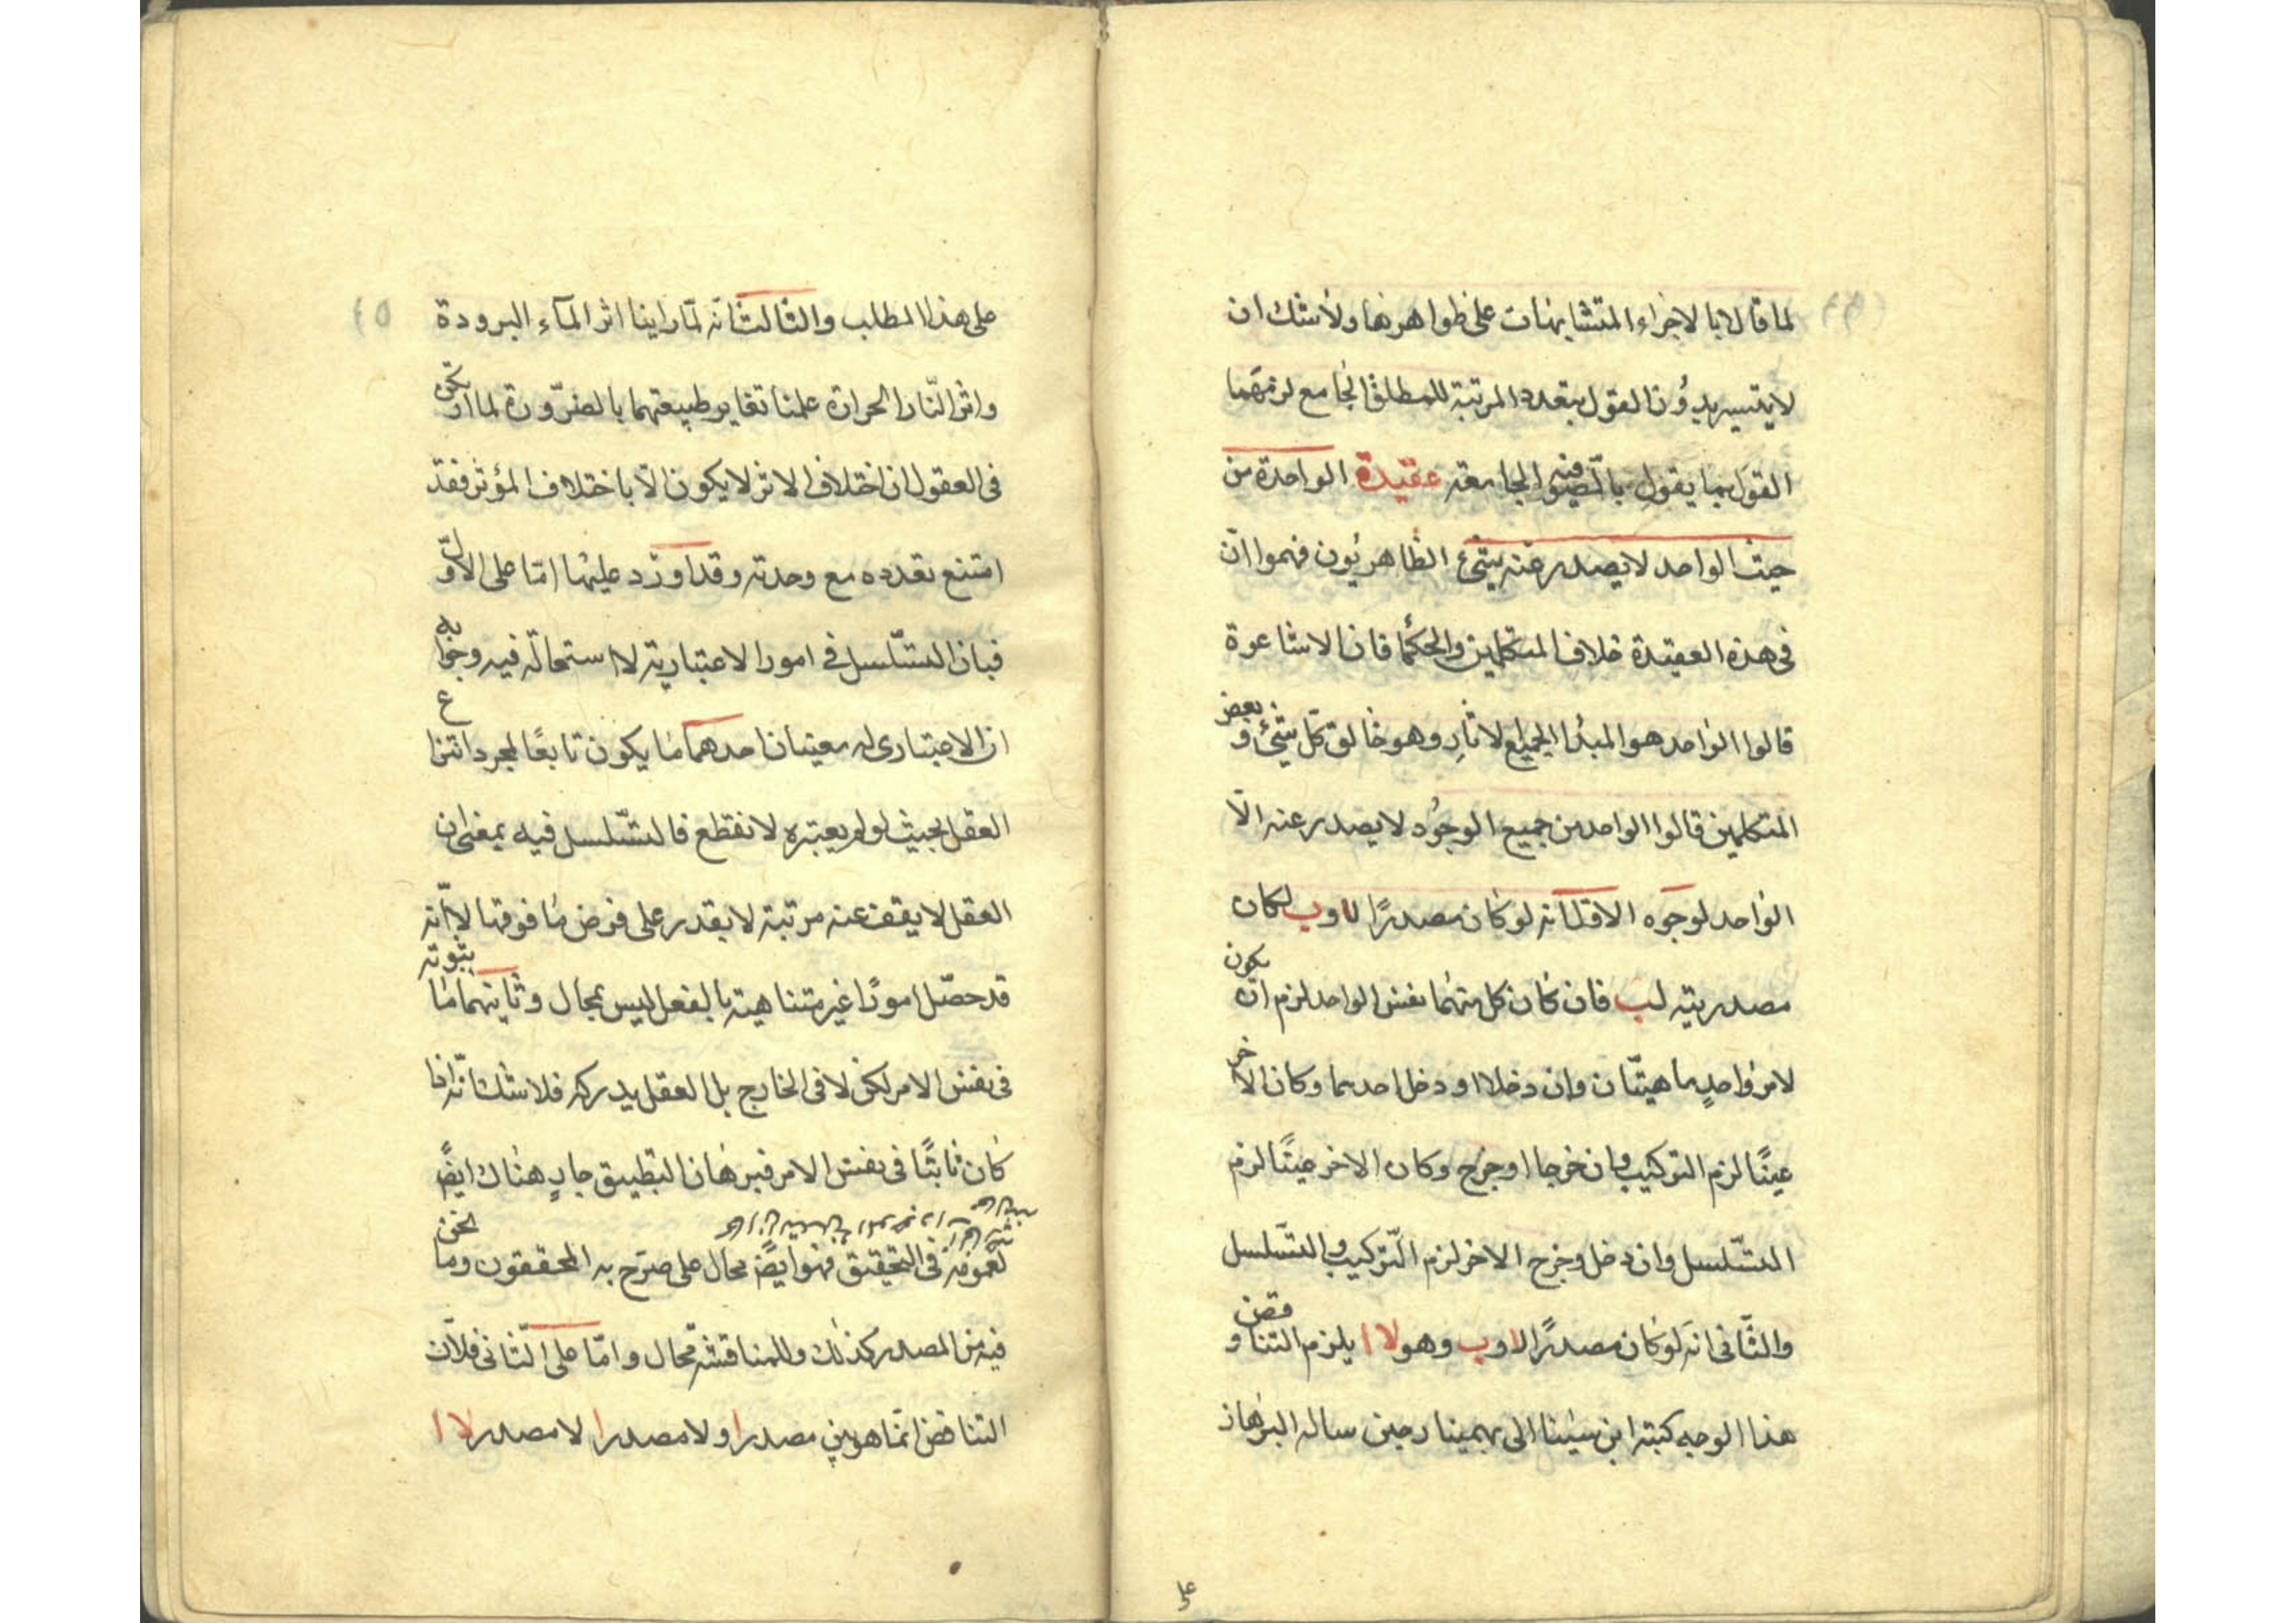 لما قالا بالاجراء المتشابهات على ظواهرها ولا شك ان
لا يتيسر بدون القول بتعدد المرتبة للمطلق الجامع لزمهما
القول بما يقول بالصوفية الجامعة عقيدة الواحدة من
حيث الواحد لا يصدر عنه شيء الظاهريون فهموا ان
في هذه العقيدة خلاف المتكلمين والحكما فان الاشاعرة
قالوا الواحد هو المبدأ لجميع الاثار وهو خالق كل شيء و بعض
المتكلمين قالوا الواحد من جميع الوجود لا يصدر عنه الّا
الواحد لوجوه الاول انه لو كان مصدرًا لا و ب لكان
مصدريته لب فان كان كل منهما نفس الواحد لزم ان يكون
لامر واحدٍ ماهيتان وان دخلا او دخل احدهما وكان الاخر
عينًا لزم التركيب وان خرجا او خرج وكان الاخر عينًا لزم
التسلسل وان دخل وخرج الاخر لزم التركيب والتسلسل
والثّانى انه لو كان مصدرًا لا و ب وهو لا ا يلزم التناقض و
هذا الوجه كتبه ابن سينا الى بهمينار حين ساله البرهان
على
على هذا المطلب والثالث انه لمّا راينا اثر المآء البرودة
واثر النّار الحرارة علمنا تغاير طبيعتهما بالضرورة لما ارتكز
فى العقول ان اختلاف الاثر لا يكون الّا باختلاف المؤثر فقد
امتنع تعدده مع وحدته وقد اورد عليها امّا على الاوّل
فبان التسّلسل في امور الاعتبارية لا استحالة فيه وجوابه
ان الاعتبارى له معنيان احدهما ما يكون تابعًا لمجرد انتزاع
العقل بحيث لو لم يعتبره لانقطع فالتسّلسل فيه بمعنى ان
العقل لا يقف عند مرتبة لا يقدر على فرض ما فوقها لا انّه
قد حصّل امورًا غير متناهية بالفعل ليس بمحال وثانيهما ما ثبوته
فى نفس الامر لكن لا فى الخارج بل العقل يدركه فلا شك انّه اذا
كان ثابتًا فى نفس الامر فبرهان التطبيق جارٍ هناك ايضًا
فى التحقيق فهو ايضًا محال على صرّح به المحققون وما نحن
فيه من المصدر كذلك وللمناقشة مجال وامّا على الثّانى فلانّ
التناقض انّما هو بين مصدر ا و لا مصدر ا لا مصدر لا ا